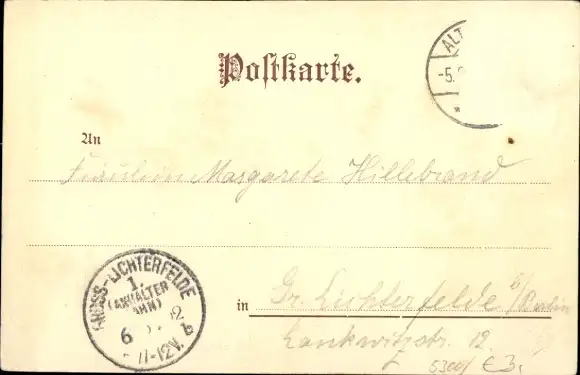 Postkarte.
ALT
-5.
An
Fräulein Margarete Hillebrand
GROSS-LICHTERFELDE
1.
(ANHALTER
BAHN)
6 2
11-12V.
in Gr. Lichterfelde b/Berlin
Lankwitzstr. 12
€3,